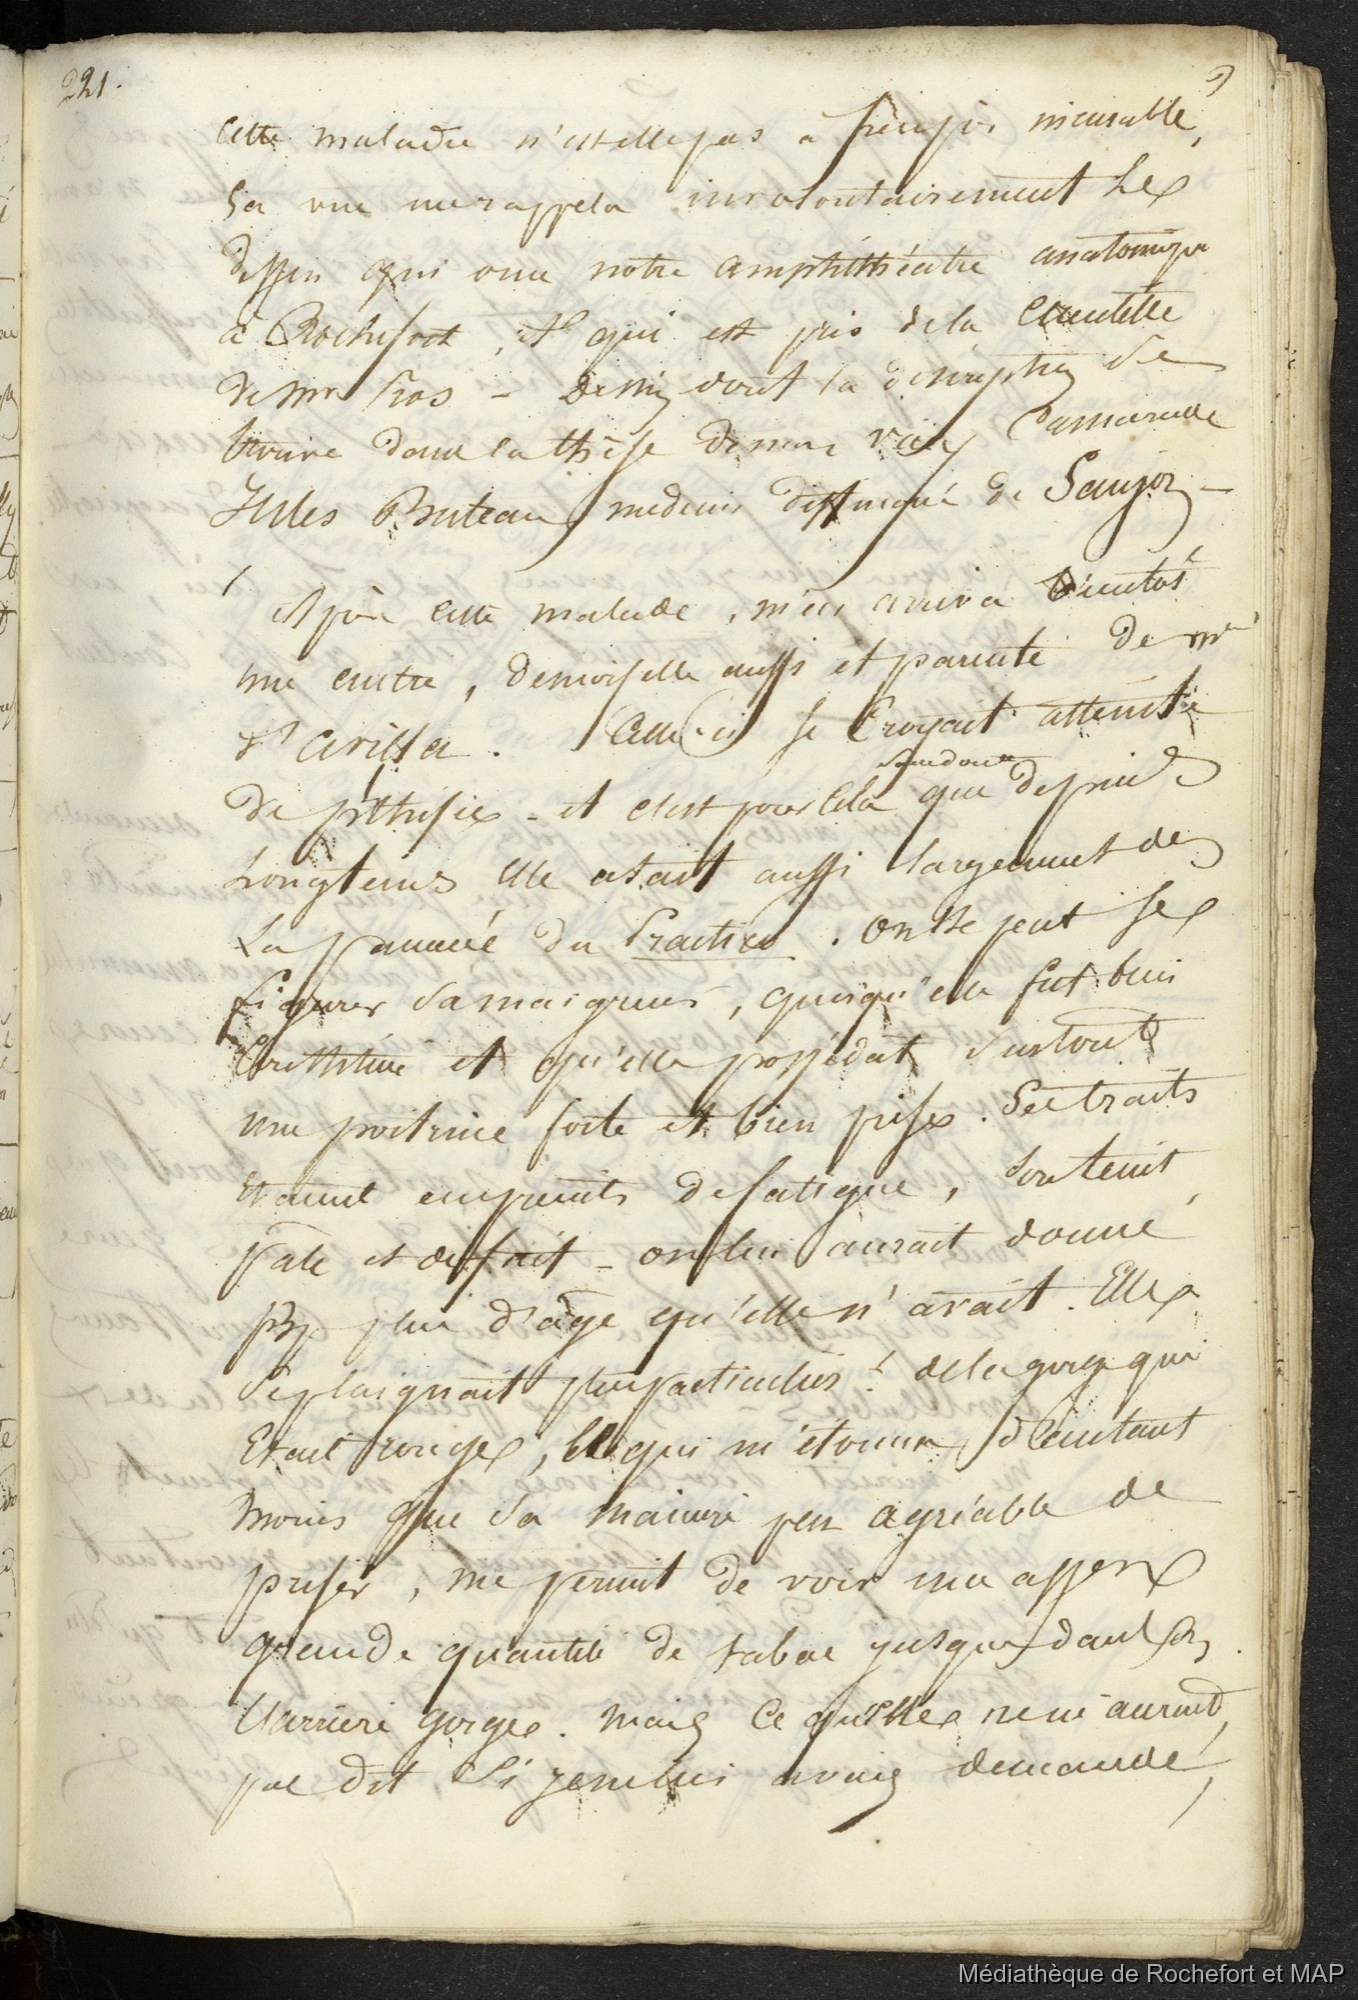 221.
cette maladie n'est elle pas a peu près incurable,
Sa vue me rappela involontairement le
dessin qui orne notre amphithéatre anatomique
à Rochefort, et qui est pris de la clientelle
de Mr - dessin dont la description se
trouve dans la thèse de mon vieux Camarade
Jules Buteau médecin distingué de Saujon -
Après cette malade, m'en arriva bientôt
une autre, demoiselle aussi et parente de Mr
Celle-ci se Croyait atteinte
sans doute
de pthisie - et c'est pour cela que depuis
Longtems elle usait aussi largement de
La panacée du Practico. On se peut
figurer sa maigreur, quoiqu'elle fut bien
Constituée et qu'elle possédat surtout
une poitrine forte et bien prise. Ses traits
Etaient empreints de fatigue, son teint
pale et défait - on lui aurait donné
plus d'âge qu'elle n'avait. Elle
se plaignait plus particulièrt de la gorge qui
Etait rouge, ce qui m'étonna d'autant
moins que sa manière peu agréable de
priser, me permit de voir une assez
grande quantité de tabac jusque dans
l'arrière gorge. Mais ce qu'elle ne m'aurait
pas dit, Si je ne lui avais demandé,
Médiathèque de Rochefort et MAP